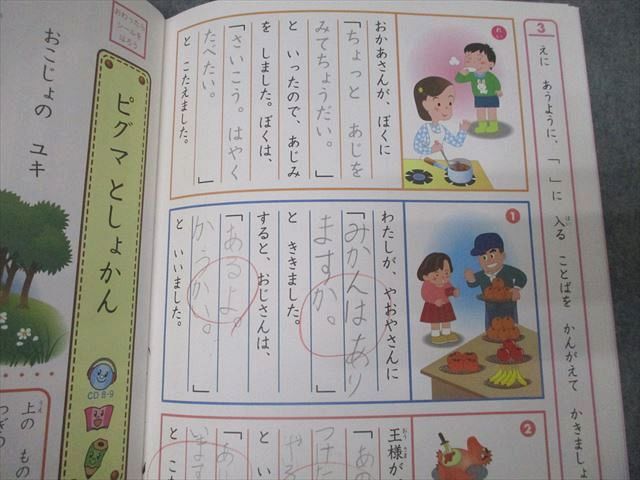 3
えに あうように、「 」に 入る ことばを かんがえて かきましょ
れい
おかあさんが、ぼくに
「ちょっと あじを
みてちょうだい。」
と いったので、あじみ
を しました。ぼくは、
「さいこう。はやく
たべたい。」
と こたえました。
1
わたしが、やおやさんに
「みかんはあり
ますか。」
と ききました。
すると、おじさんは、
「あるよ。
かうかい。」
と いいました。
2
王様が、
「あの
つけた
やる
と い
「あり
います
と こ
おわったら
シールを
はろう
ピグマ としょかん
CD 8-9
おこじょの ユキ
上の もの
つぎの